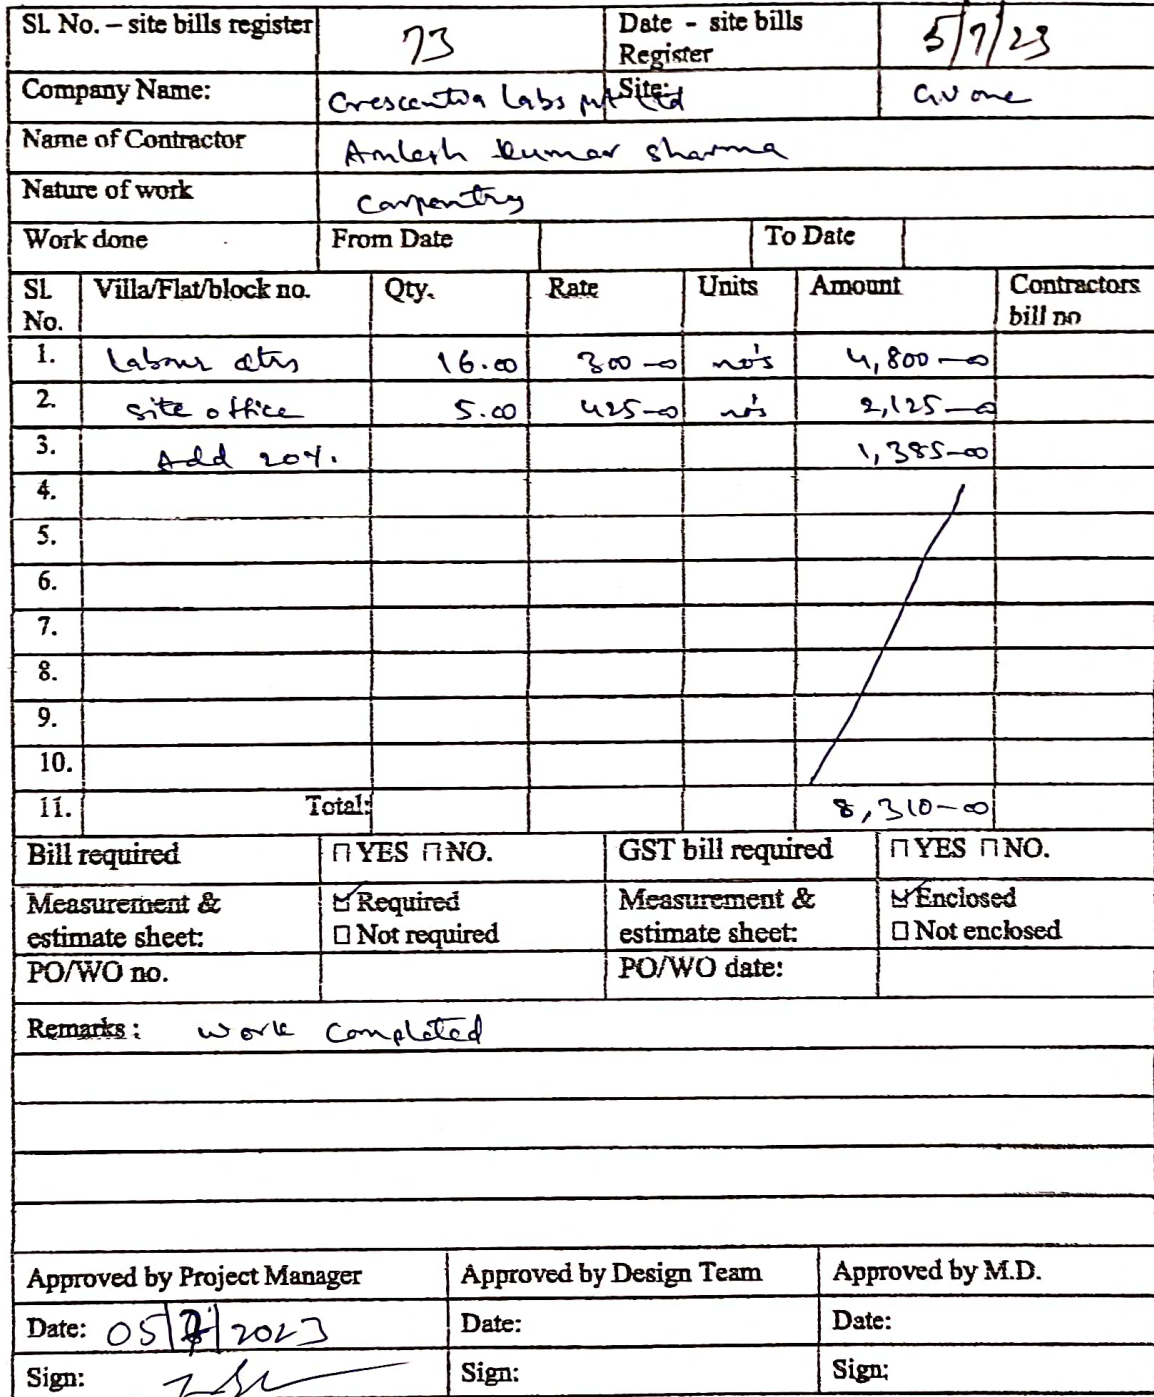 Sl. No. – site bills register 73 Date - site bills Register 5/7/23
Company Name: Crescentia Labs pvt Ltd Site: GV one
Name of Contractor Amlesh Kumar Sharma
Nature of work Carpentry
Work done From Date To Date
Sl. No. Villa/Flat/block no. Qty. Rate Units Amount Contractors bill no
1. Labour 16.00 300-00 no's 4,800-00
2. site office 5.00 425-00 no's 2,125-00
3. Add 20%. 1,385-00
4.
5.
6.
7.
8.
9.
10.
11. Total: 8,310-00
Bill required YES NO. GST bill required YES NO.
Measurement & estimate sheet: ☑ Required ☐ Not required Measurement & estimate sheet: ☑ Enclosed ☐ Not enclosed
PO/WO no. PO/WO date:
Remarks: work completed
Approved by Project Manager Approved by Design Team Approved by M.D.
Date: 05/7/2023 Date: Date:
Sign: Sign: Sign: